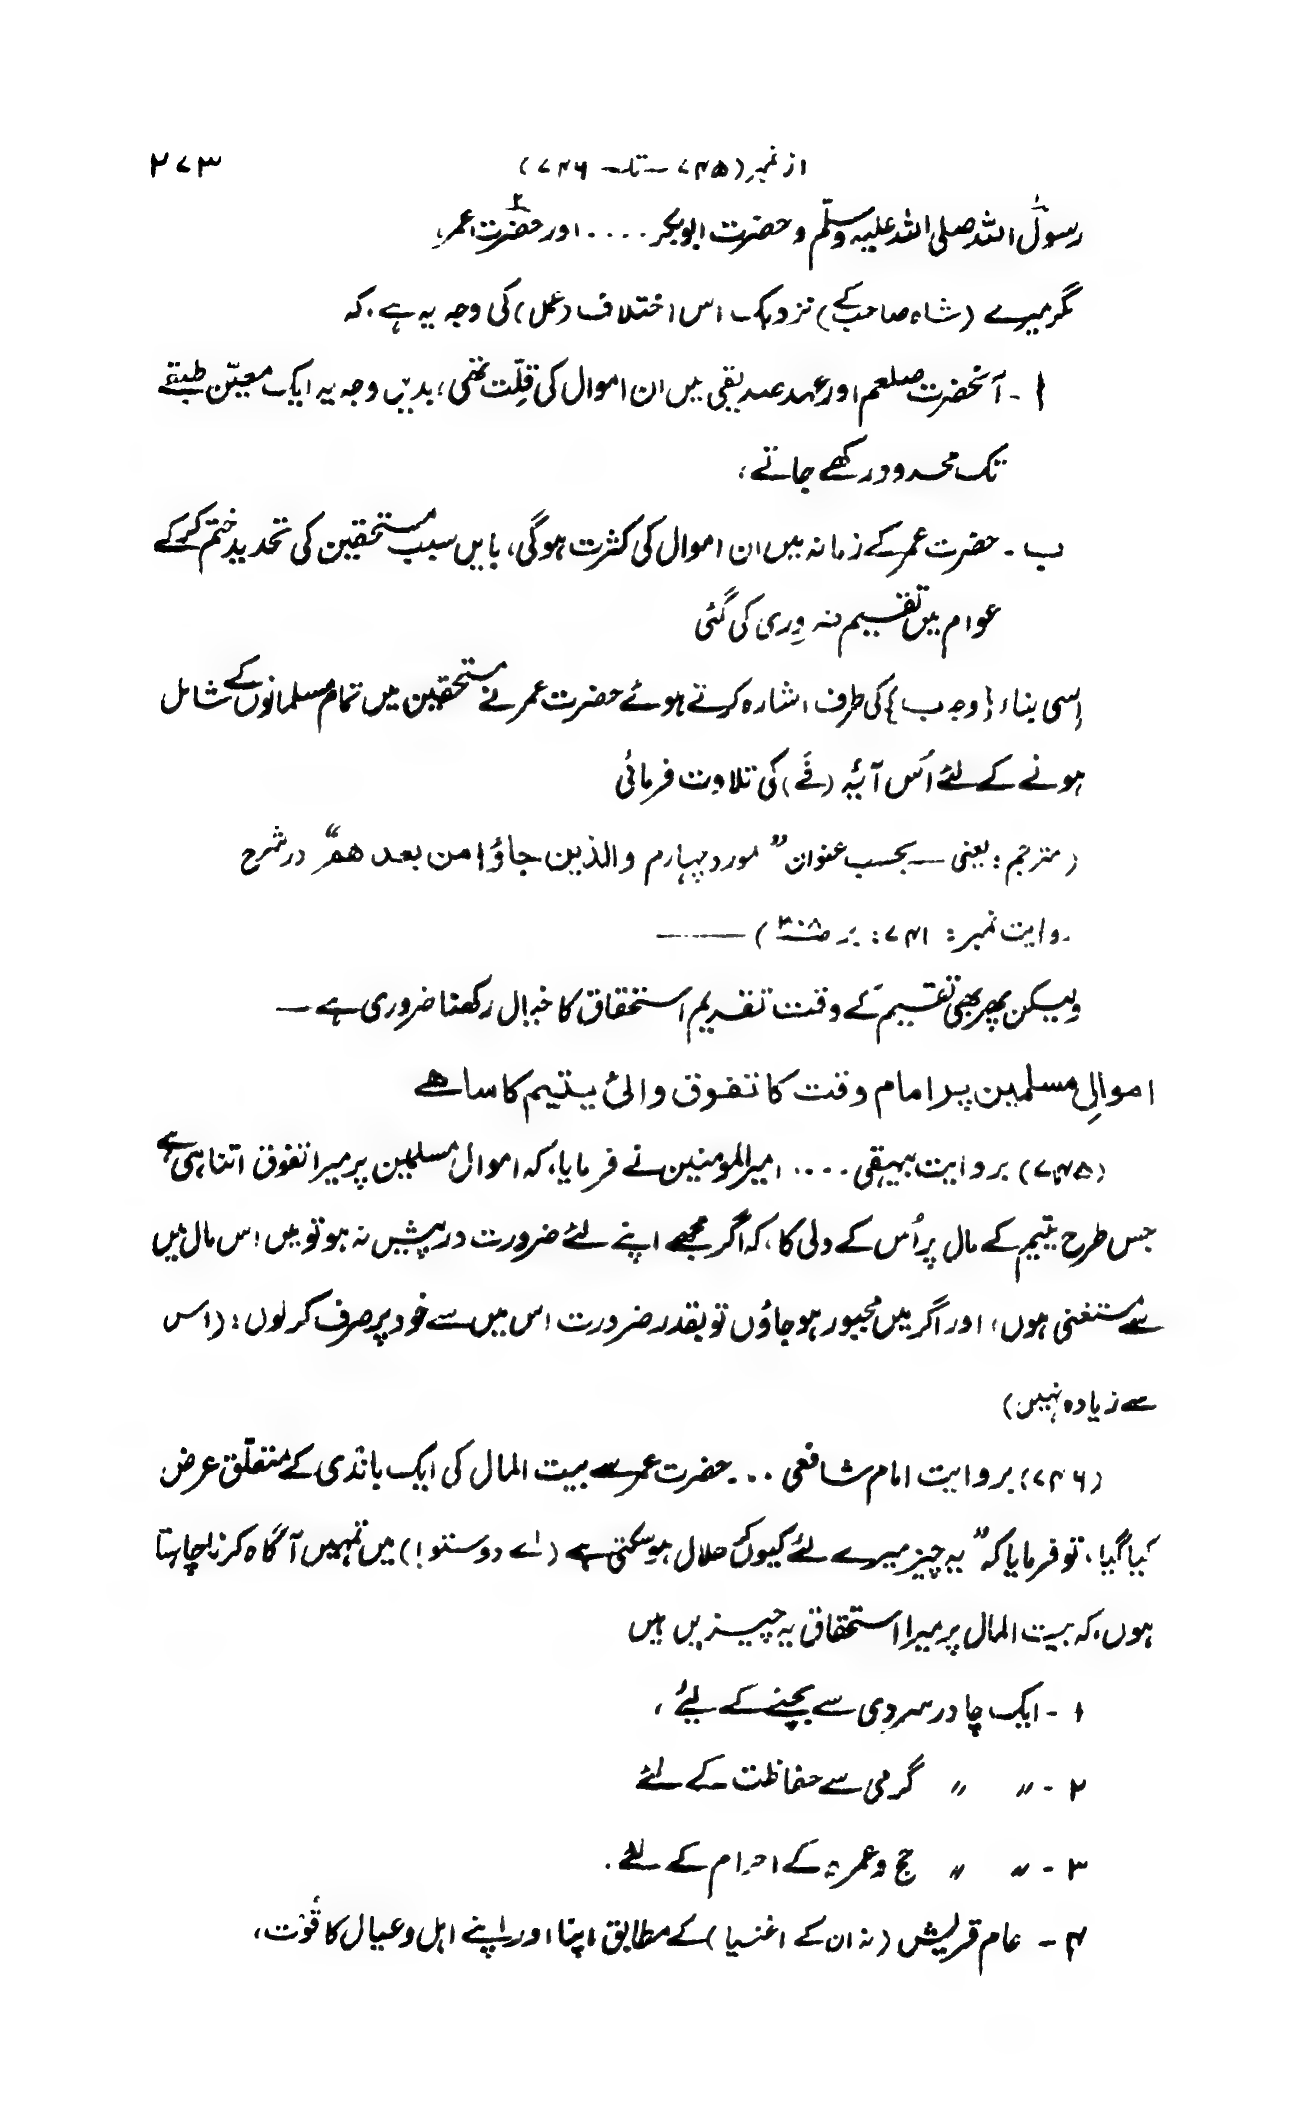 از نمبر (۷۴۵ — تا — ۷۴۶) ۲۷۳
رسول اللہ صلی اللہ علیہ وسلّم و حضرت ابوبکر .... اور حضرت عمر،
مگر میرے (شاہ صاحب کے) نزدیک اس اختلاف (عمل) کی وجہ یہ ہے، کہ
ا - آنحضرت صلعم اور عہد صدیقی میں ان اموال کی قلّت تھی؛ بدیں وجہ یہ ایک معیّن طبقے
تک محدود رکھے جاتے؛
ب - حضرت عمر کے زمانہ میں ان اموال کی کثرت ہوگی، بایں سبب مستحقین کی تحدید ختم کرکے
عوام میں تقسیم ضروری کی گئی
اِسی بناء {وجہ ب} کی طرف اشارہ کرتے ہوئے حضرت عمر نے مستحقین میں تمام مسلمانوں کے شامل
ہونے کے لئے اُس آئیہ (فَے) کی تلاوت فرمائی
(مترجم: یعنی — بحسب عنوان ”مورد چہارم والذین جاؤا من بعد ھم“ در شرح
روایت نمبر: ۷۴۱: بر ص ۳۰۸) ———
ولیکن پھر بھی تقسیم کے وقت تقدیم استحقاق کا خیال رکھنا ضروری ہے —
اموالِ مسلمین پر امام وقت کا تفوق والیٔ یتیم کا سا ھے
(۷۴۵) بروایت بیہقی .... امیر المومنین نے فرمایا، کہ اموال مسلمین پر میرا تفوق اتنا ہی ہے
جس طرح یتیم کے مال پر اُس کے ولی کا، کہ اگر مجھے اپنے لئے ضرورت درپیش نہ ہو تو میں اس مال میں
سے مستغنی ہوں؛ اور اگر میں مجبور ہو جاؤں تو بقدر ضرورت اس میں سے خود پر صرف کر لوں: (اس
سے زیادہ نہیں)
(۷۴۶) بروایت امام شافعی ... حضرت عمر سے بیت المال کی ایک باندی کے متعلّق عرض
کیا گیا، تو فرمایا کہ ”یہ چیز میرے لئے کیوں کر حلال ہو سکتی ہے (اے دوستو!) میں تمہیں آگاہ کرنا چاہتا
ہوں، کہ بیت المال پر میرا استحقاق یہ چیزیں ہیں
۱ - ایک چادر سردی سے بچنے کے لیٔے،
۲ - " " گرمی سے حفاظت کے لئے
۳ - " " حج و عمرہ کے احرام کے لئے.
۴ - عام قریش (نہ ان کے اغنیا) کے مطابق اپنا اور اپنے اہل و عیال کا قُوْت،